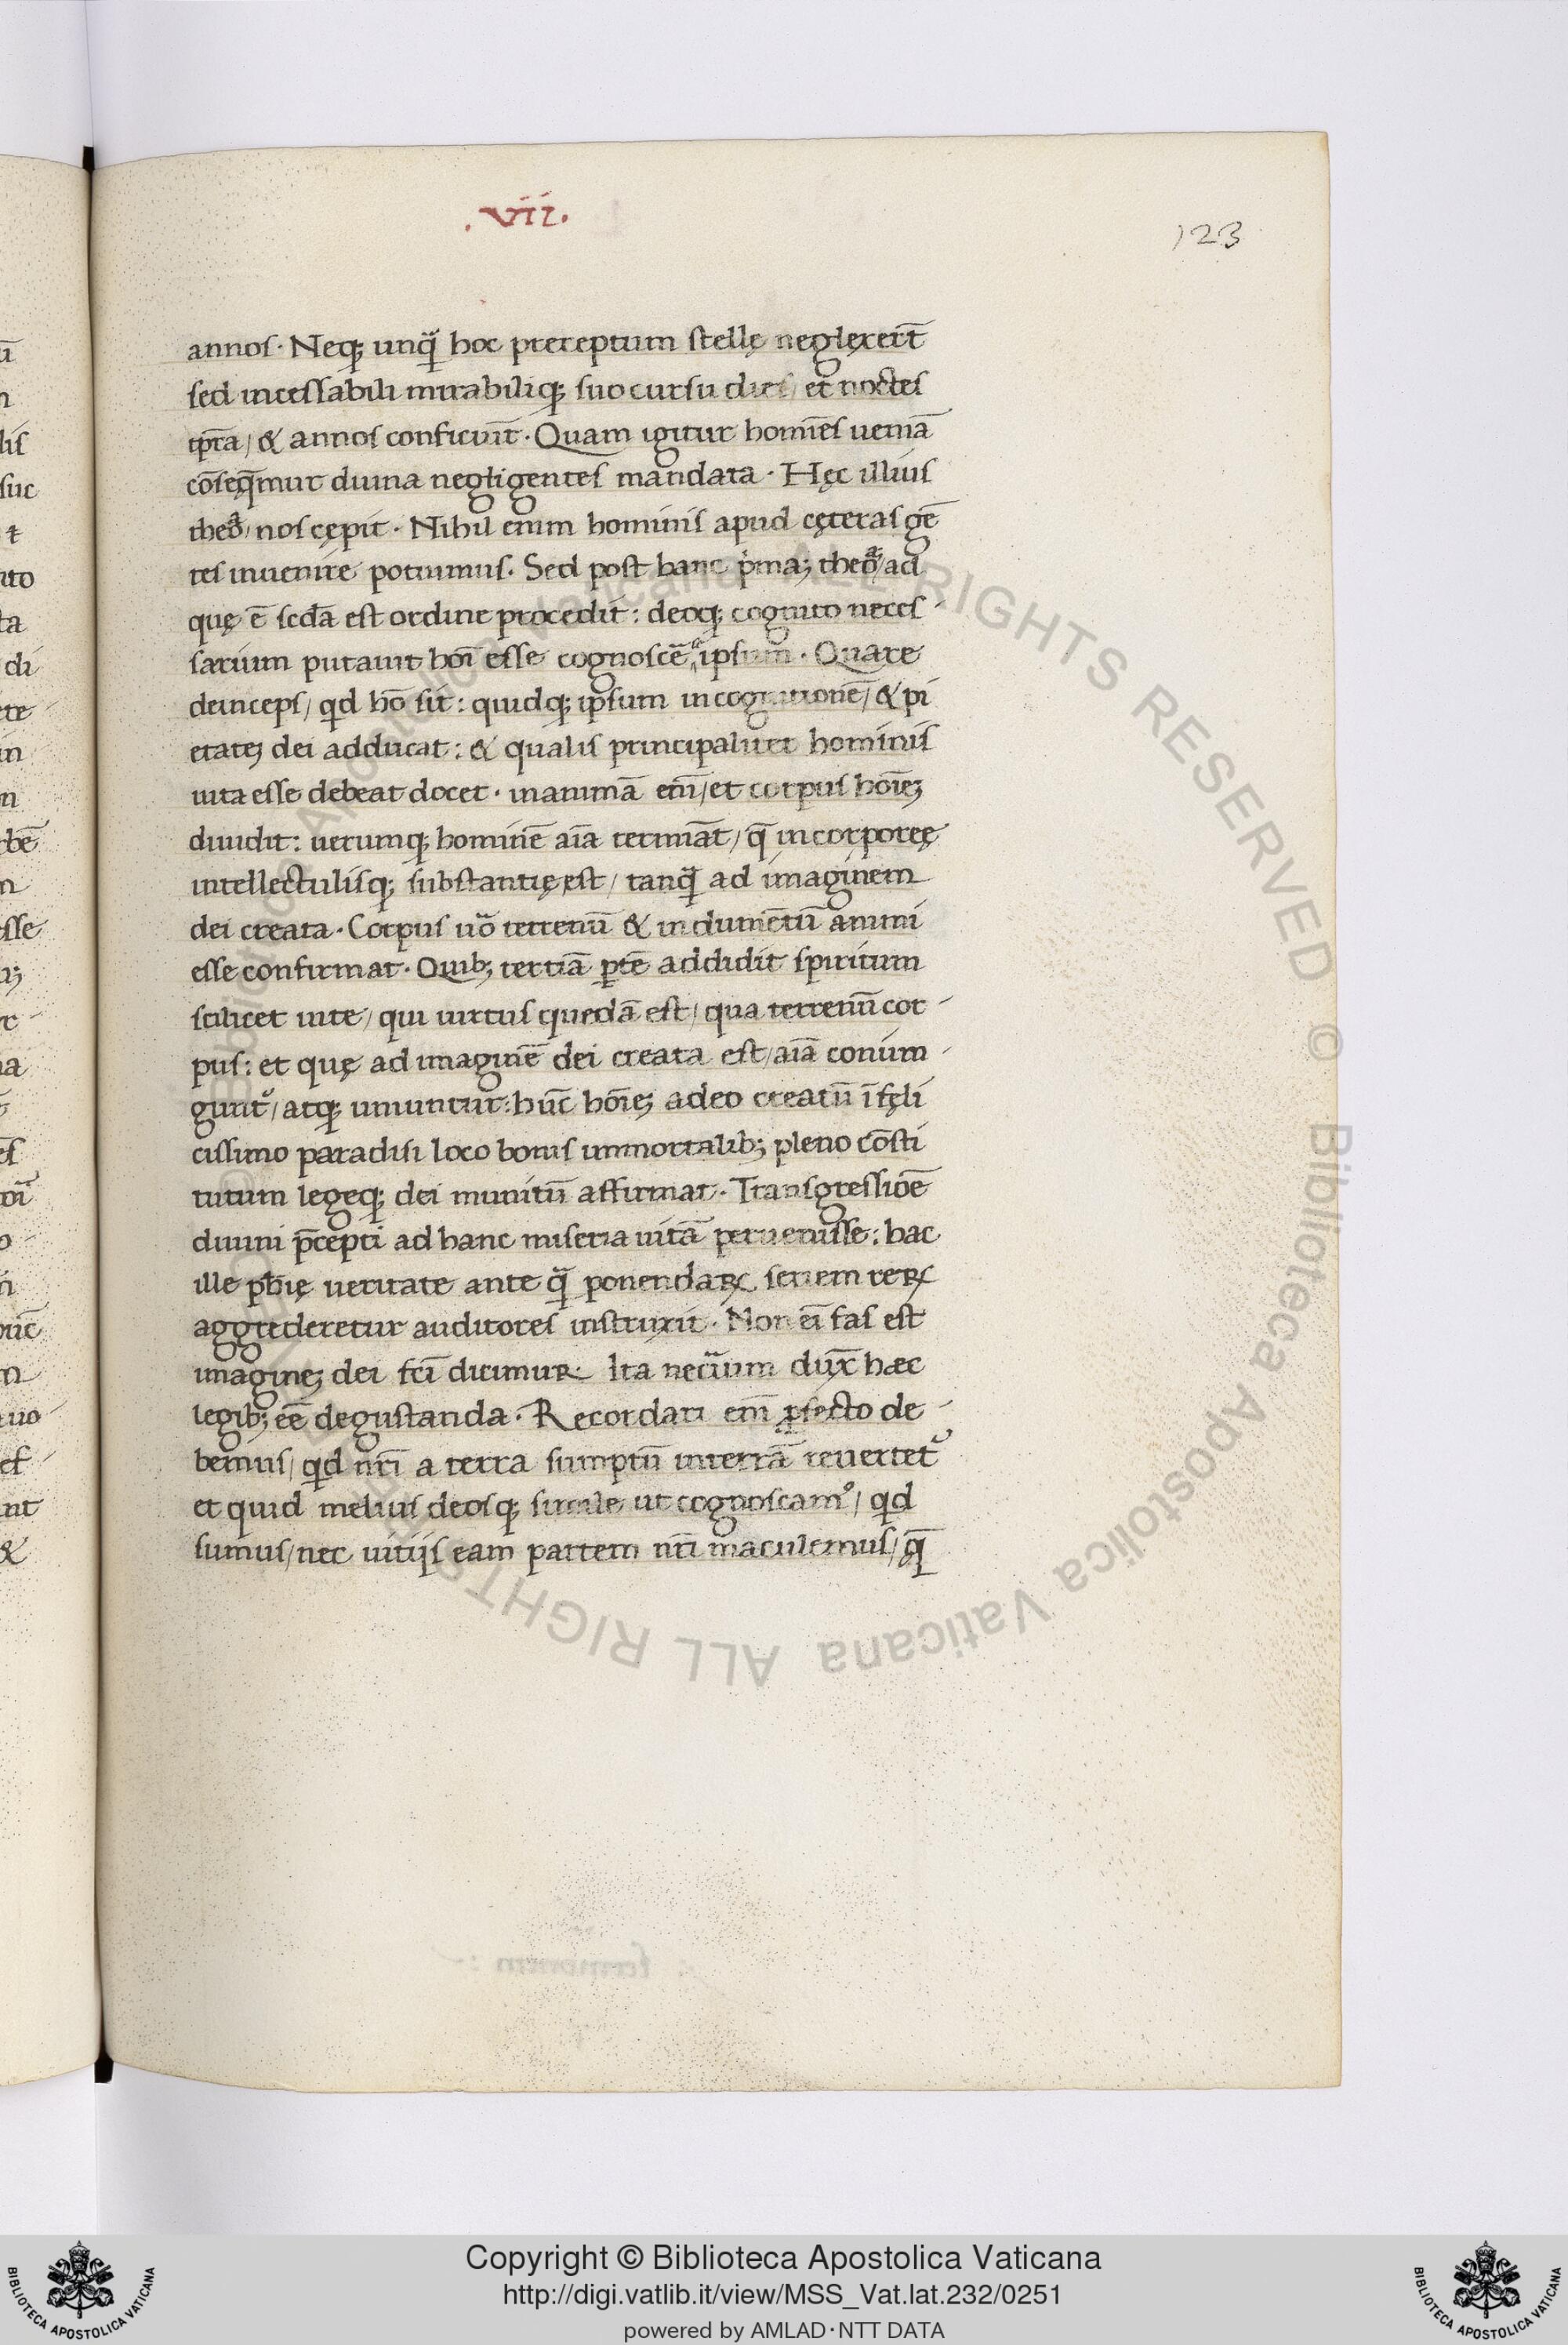 .VII.
123
annos · Neq; unq̃ hoc preceptum stellę neglexert̄
sed incessabili mirabiliq; suo cursu dies / et noctes
tp̄ra / & annos conficiūt · Quam igitur homīes ueniā
cōseq̄mur diuina negligentes mandata · Hęc illius
theoᵃ / nos cępit · Nihil enim hominis apud cęteras gē
tes inuenire potuimus · Sed post hanc pⁱma; theoᵃ / ad
quę ē scđa est ordine procedit : deoq; cognito neces -
sarium putauit hoī esse cognoscē ipsum · Quare
deinceps / qd hō sit : quidq; ipsum in cognitionē / & pi
etatę; dei adducat : & qualis principaliter hominis
uita esse debeat docet · in animā eni̅ / et corpus hoīe;
diuidit : uerumq; hominē aīa termiāt / q̄ incorporeę
intellectulisq; substantię est / tanq̃ ad imaginem
dei creata · Corpus uō terrenū & indumētū animi
esse confirmat · Quib; tertiā ptē addidit spiritum
scilicet uite / qui uirtus quedā est / qua terrenū cor -
pus : et quę ad imaginē dei creata est / aīa conium -
gunt᷑ / atq; uniuntur : hūc hōīe; a deo creatū ī fęli
cissimo paradisi loco bonis immortalib; pleno cōsti
tutum legeq; dei munitū affirmat · Transgressiōe
diuini p̄cepti ad hanc miseria uitā peruenisse : hac
ille ph̄ię ueritate ante q̃ ponendaꝝ seriem reꝝ
aggrederetur auditores instruxit · Non eī fas est
imagine; dei fcī dicimur · Ita necium dux̄ hæc
legib; eē degustanda · Recordari em̄ ꝓfecto de -
bemus / qd nr̄i a terra sumptū in terrā reuertet᷑
et quid melius deosq; simile ut cognoscamꝰ / qd
sumus / nec uitijs eam partem nr̄i maculemus / q̄
Copyright © Biblioteca Apostolica Vaticana
http://digi.vatlib.it/view/MSS_Vat.lat.232/0251
powered by AMLAD·NTT DATA
BIBLIOTECA APOSTOLICA VATICANA
BIBLIOTECA APOSTOLICA VATICANA
© Biblioteca Apostolica Vaticana ALL RIGHTS RESERVED © Biblioteca Apostolica Vaticana ALL RIGHTS